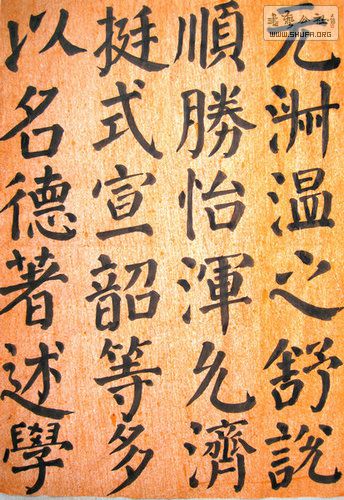 元淑温之舒說
順勝怡渾允濟
挺式宣韶等多
以名德著述學
書藝公社
WWW.SHUFA.ORG